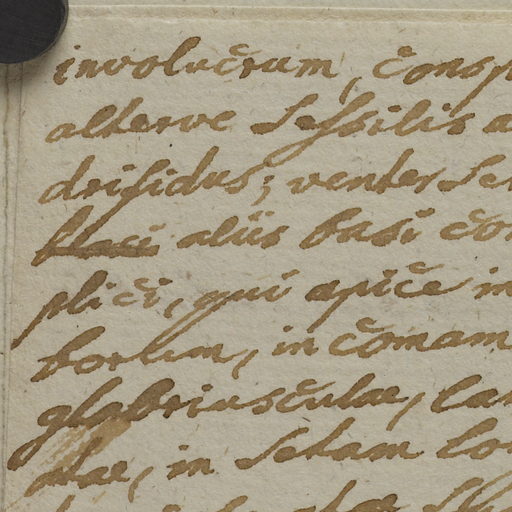 involucrum, consp
alterve sessilis a
drifidus; venter se
alüs basi co
plici, qui apice in
borum, in comam
glabriusculae, la
in setam lo